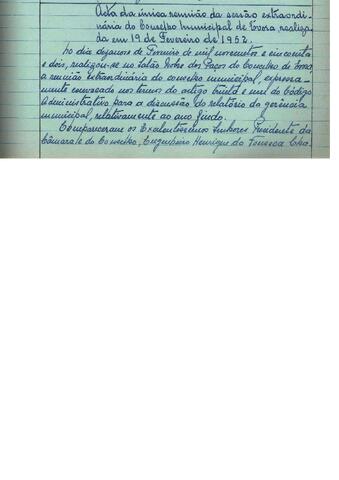 Acta da única reunião da sessão extraordi-
nária do Conselho Municipal de Évora, realiza-
da em 19 de Fevereiro de 1952.
Ao dia dezanove de Fevereiro de mil novecentos e cincoenta
e dois, realizou-se no Salão Nobre dos Paços do Concelho de Évora
a reunião extraordinária do conselho municipal, expressa-
mente convocado nos termos do artigo trinta e um do Código
Administrativo para a discussão do relatório da gerência
municipal, relativamente ao ano findo.
Compareceram os Excelentíssimos Senhores Presidente da
Câmara e do Conselho, Engenheiro Henrique da Fonseca Cha-